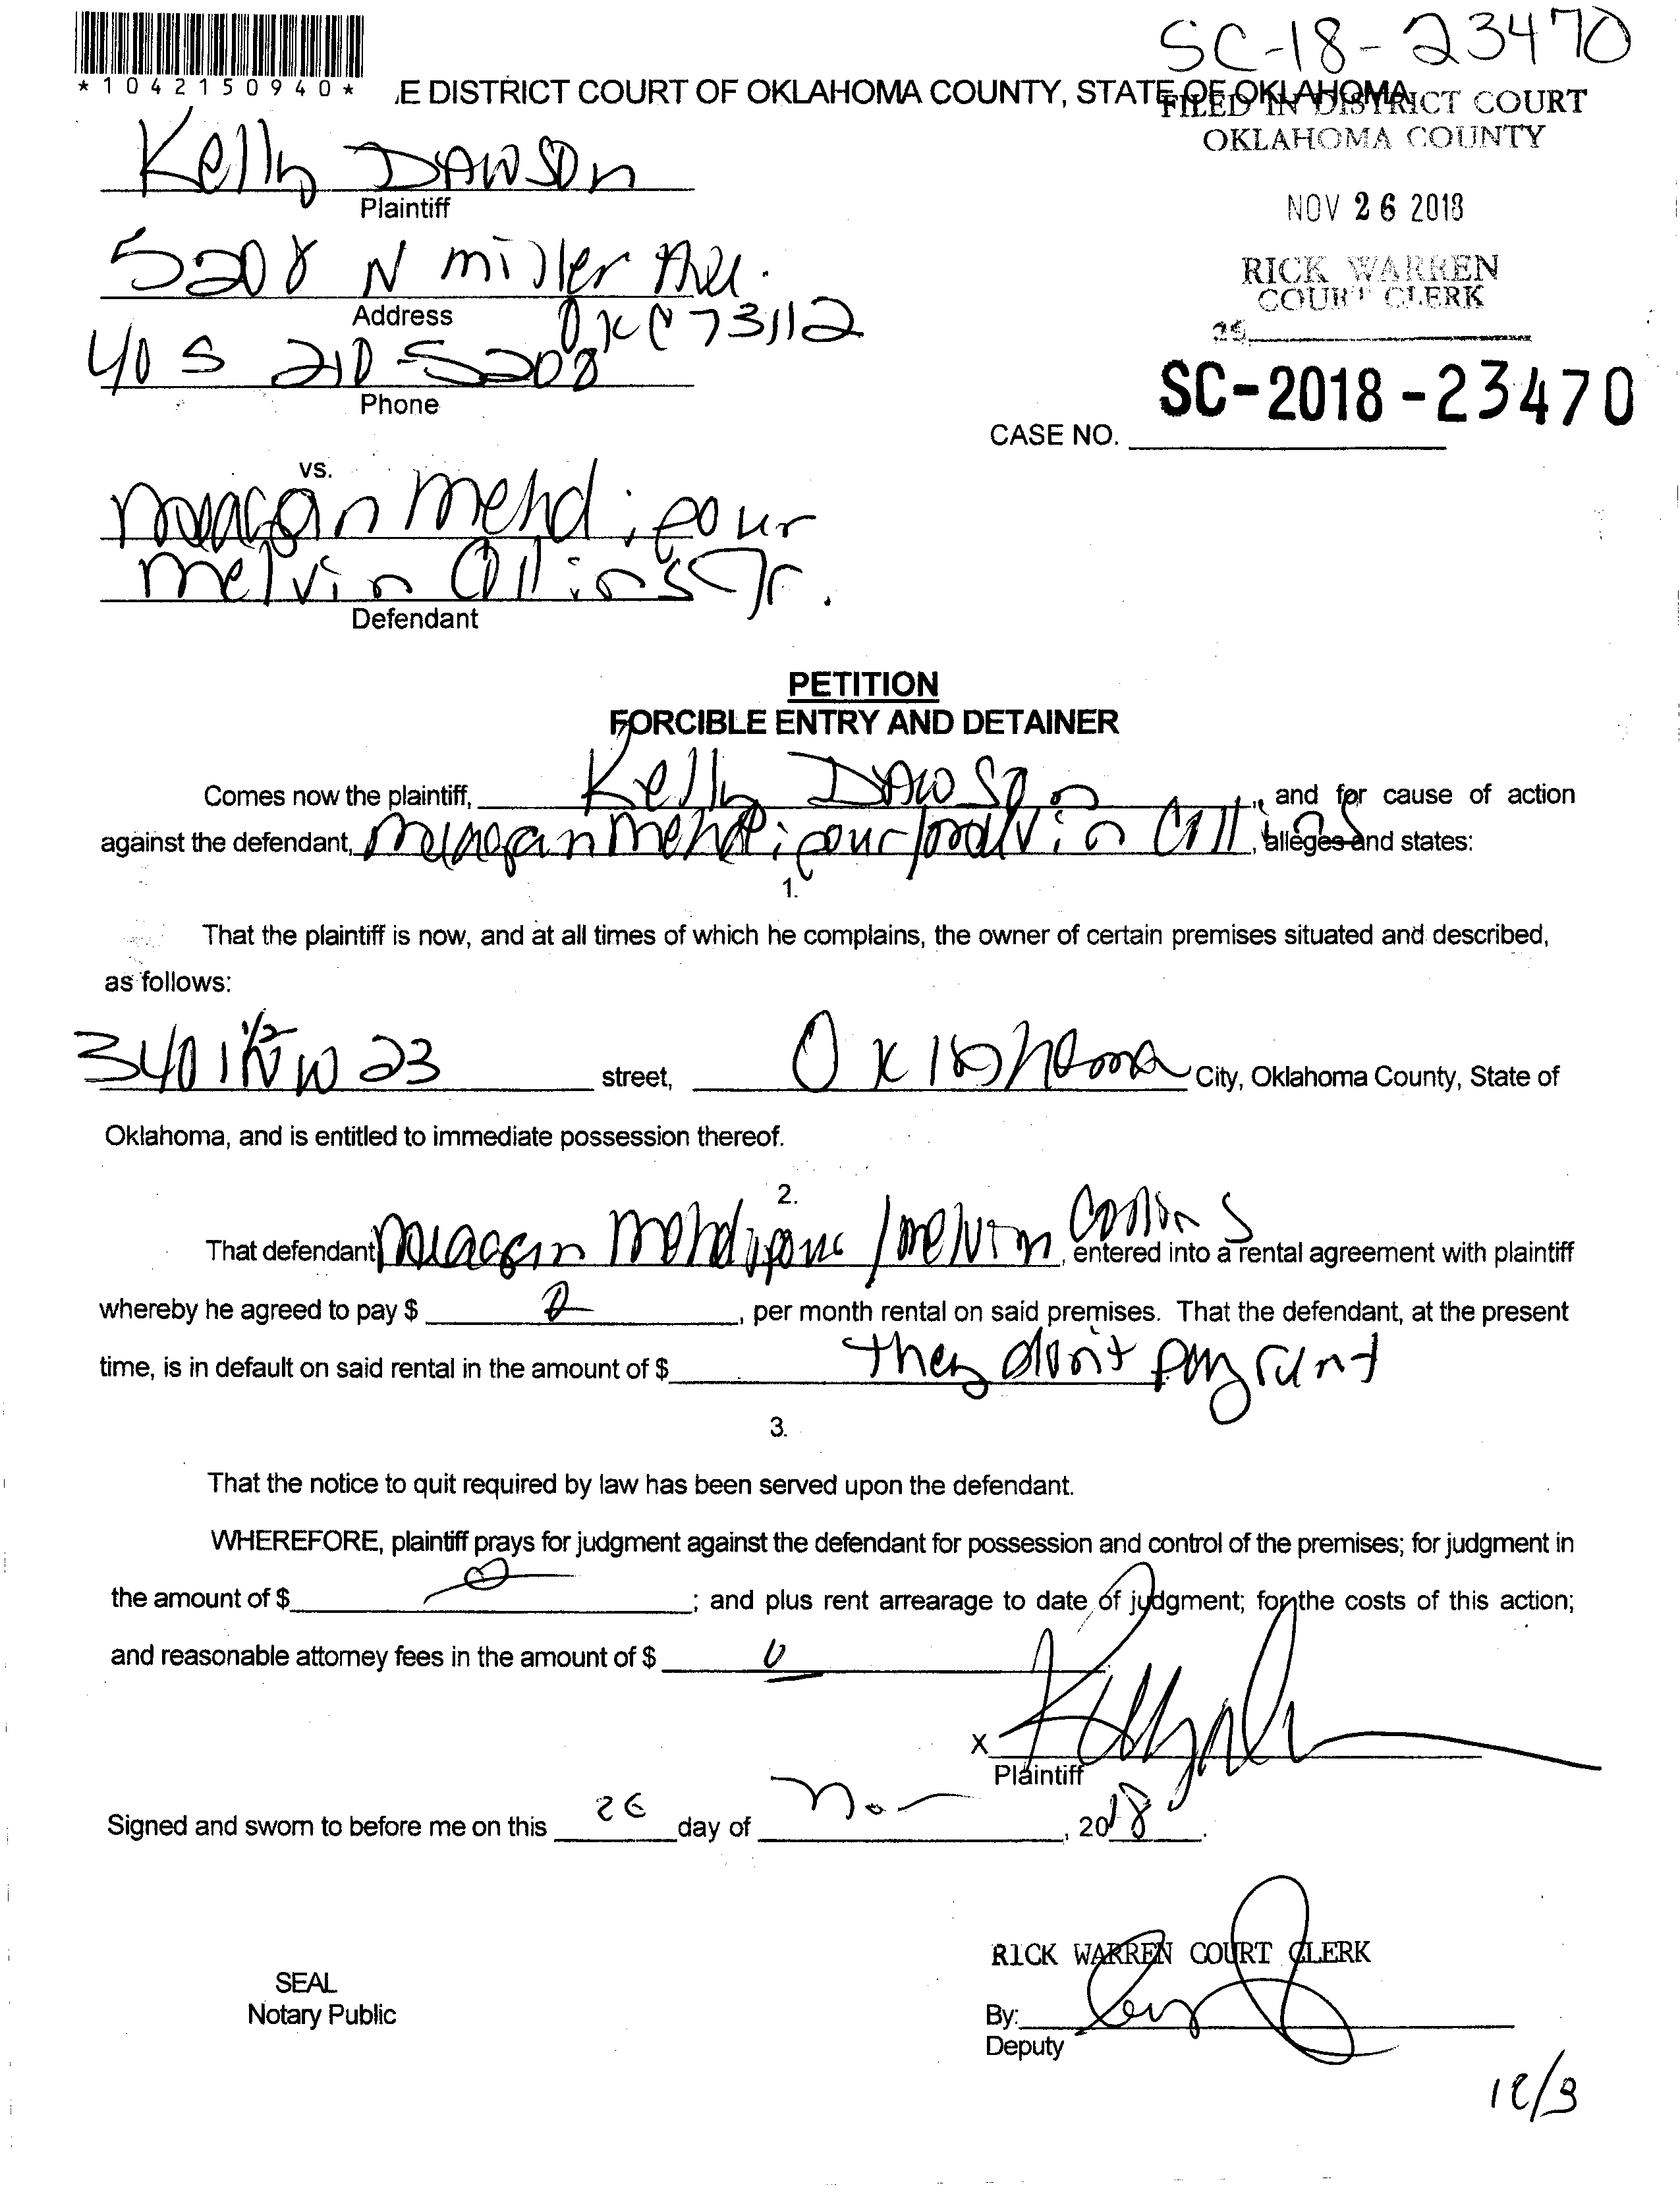 SC-18-23470
*1042150940*
E DISTRICT COURT OF OKLAHOMA COUNTY, STATE OF OKLAHOMA
FILED IN DISTRICT COURT
OKLAHOMA COUNTY
Kelly DAWSON
Plaintiff
NOV 26 2018
5208 N miller Ave.
Address
RICK WARREN
COURT CLERK
OKC 73112
405 210-5208
Phone
SC-2018-23470
CASE NO.
vs.
Meagan Mehdipour
melvin Collins Jr.
Defendant
PETITION
FORCIBLE ENTRY AND DETAINER
Comes now the plaintiff, Kelly DAWSON, and for cause of action
against the defendant, Meagan Mehdipour/melvin Collins, alleges and states:
1.
That the plaintiff is now, and at all times of which he complains, the owner of certain premises situated and described,
as follows:
3401 1/2 NW 23 street, Oklahoma City, Oklahoma County, State of
Oklahoma, and is entitled to immediate possession thereof.
2.
That defendant Meagan Mehdipour /melvin Collins, entered into a rental agreement with plaintiff
whereby he agreed to pay $ 0, per month rental on said premises. That the defendant, at the present
time, is in default on said rental in the amount of $ they don't pay rent
3.
That the notice to quit required by law has been served upon the defendant.
WHEREFORE, plaintiff prays for judgment against the defendant for possession and control of the premises; for judgment in
the amount of $ 0; and plus rent arrearage to date of judgment; for the costs of this action;
and reasonable attorney fees in the amount of $ 0
X
Plaintiff
Signed and sworn to before me on this 26 day of Nov, 2018.
RICK WARREN COURT CLERK
SEAL
Notary Public
By:
Deputy
12/3